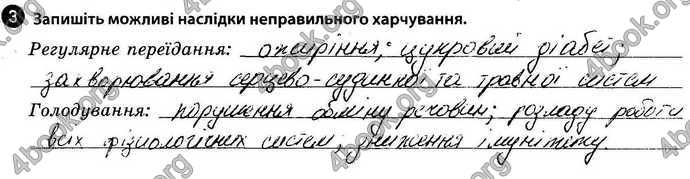 3 Запишіть можливі наслідки неправильного харчування.
Регулярне переїдання: ожиріння; цукровий діабет;
захворювання серцево-судинної та травної систем
Голодування: порушення обміну речовин; розлади роботи
всіх фізіологічних систем; зниження імунітету.
4book.org